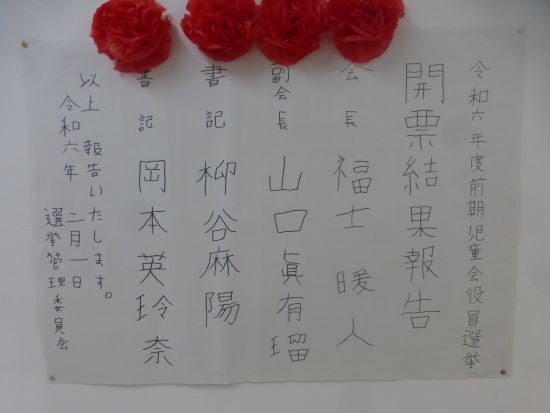 令和六年度前期児童会役員選挙
開票結果報告
会長 福士 暖人
副会長 山口眞有瑠
書記 柳谷麻陽
書記 岡本英玲奈
以上 報告いたします。
令和六年 二月一日
選挙管理委員会